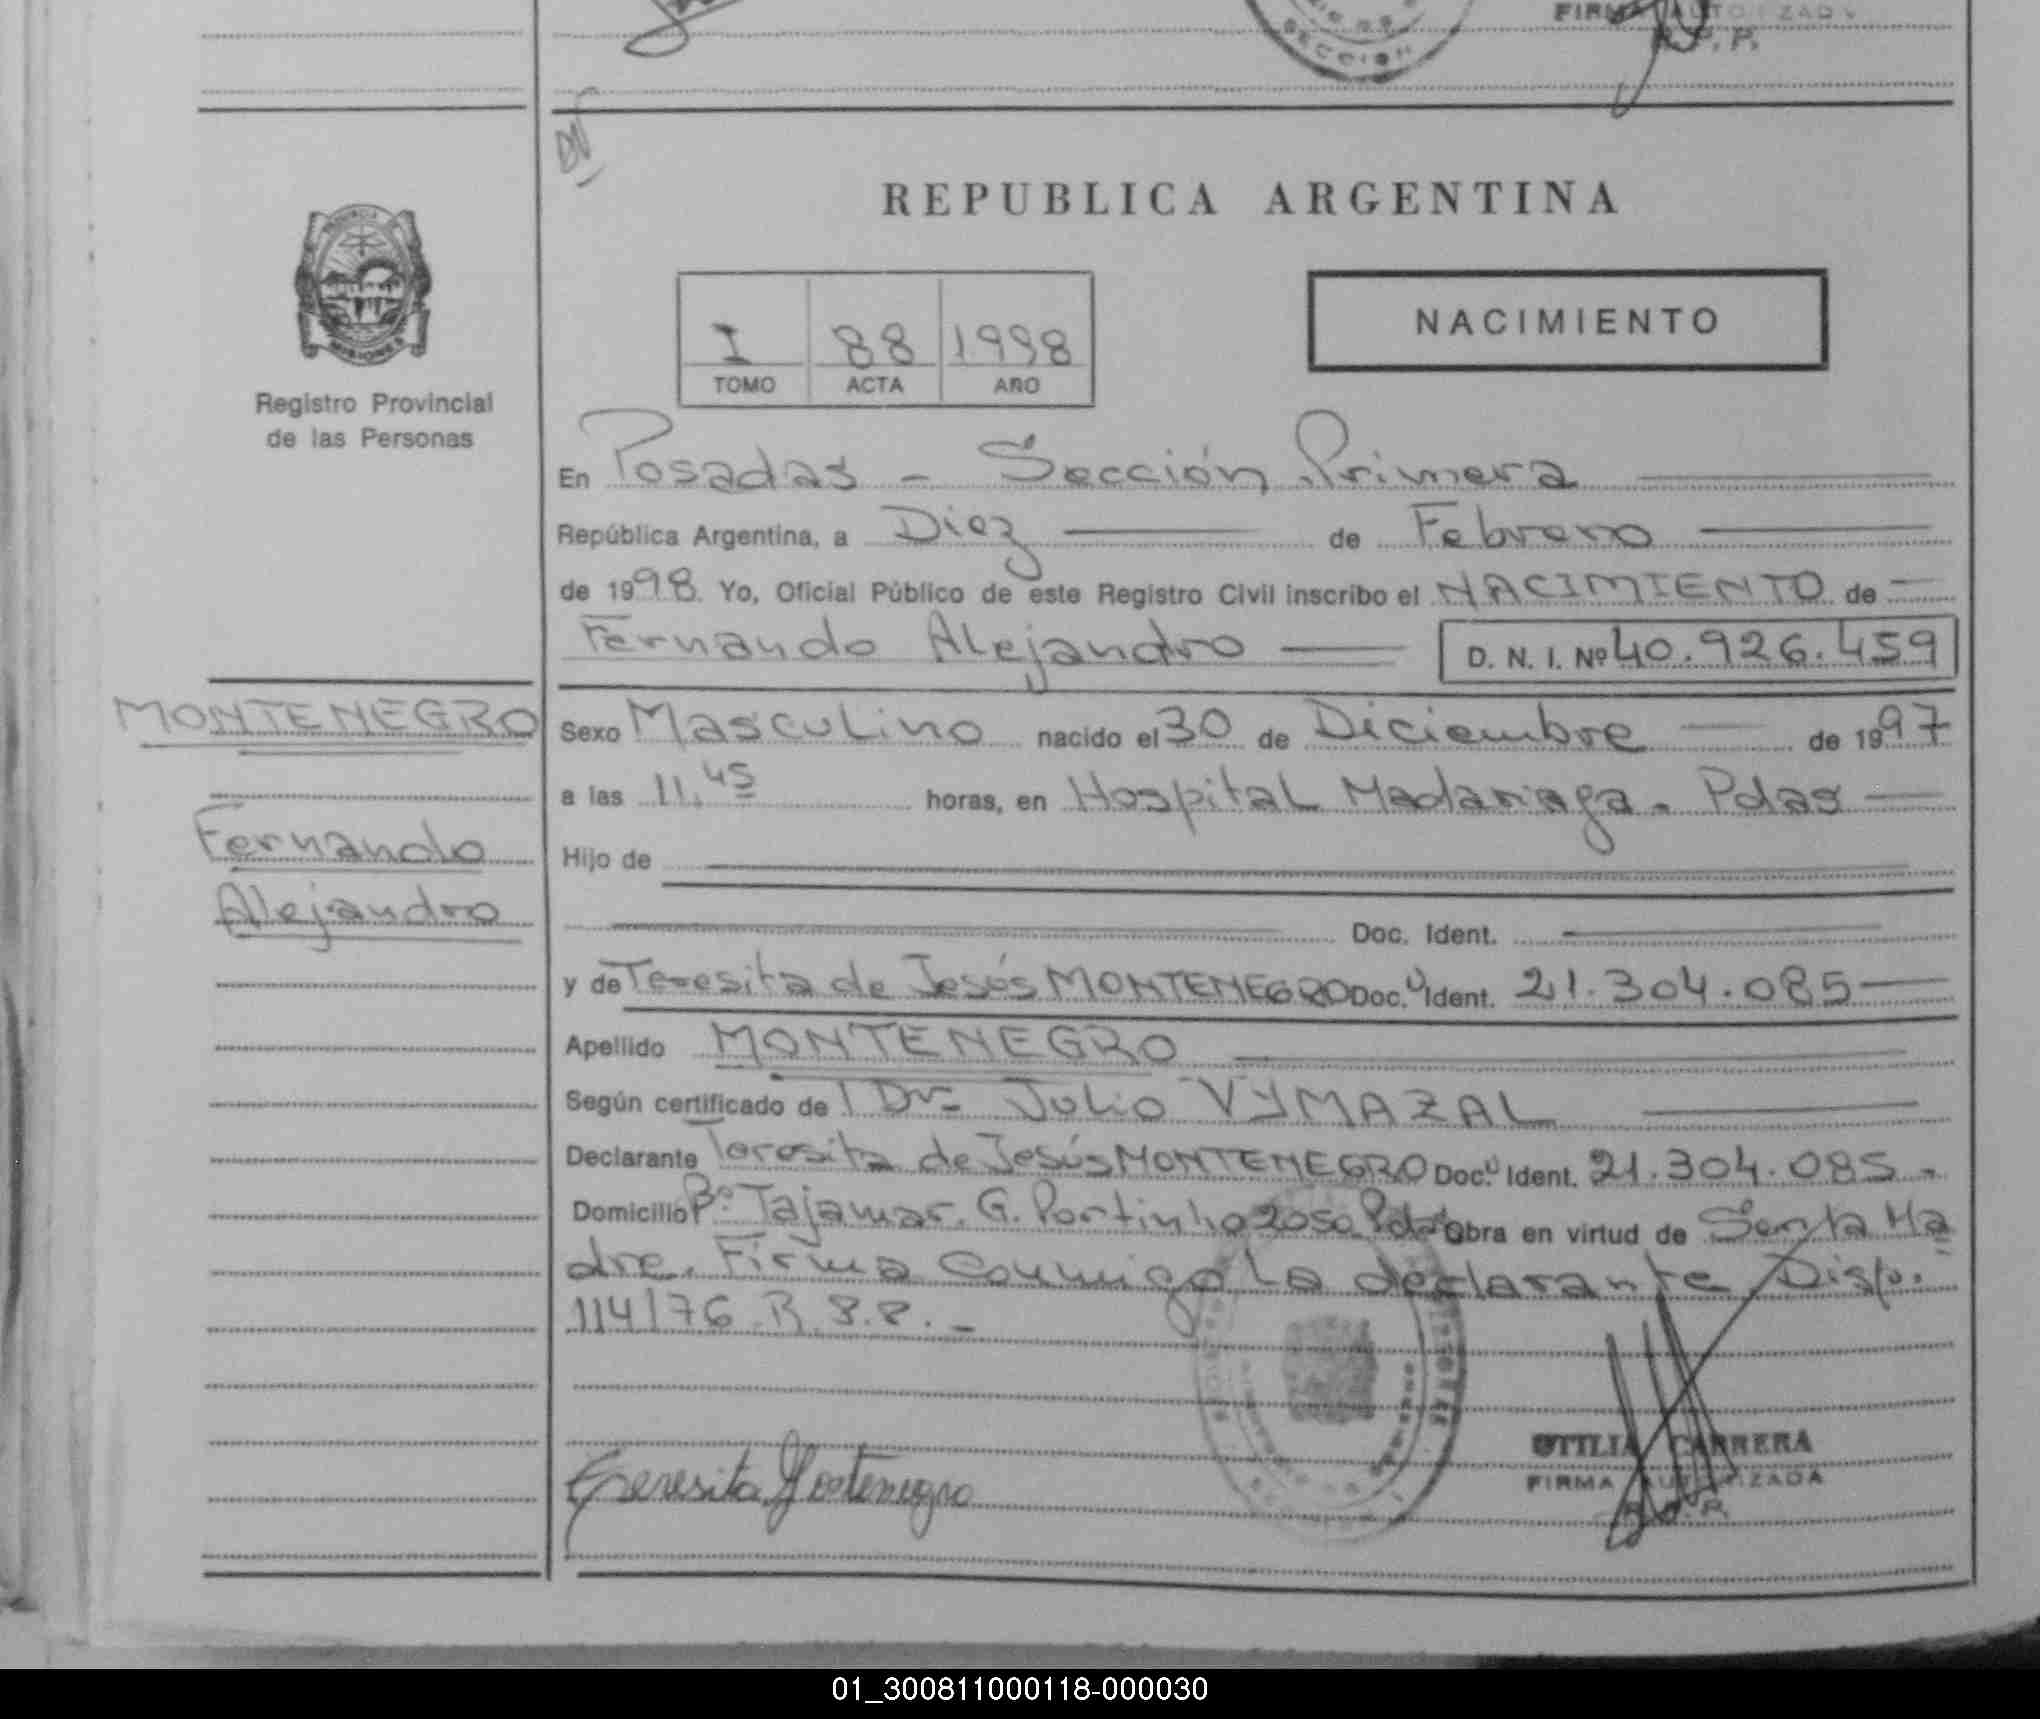 FIRMA AUTORIZADA
R. P. P.
SECCION
REPUBLICA ARGENTINA
I 88 1998
TOMO ACTA AÑO
NACIMIENTO
MISIONES
Registro Provincial
de las Personas
En Posadas - Sección Primera
República Argentina, a Diez de Febrero
de 1998. Yo, Oficial Público de este Registro Civil inscribo el NACIMIENTO de
Fernando Alejandro D. N. I. Nº 40.926.459
MONTENEGRO
Fernando
Alejandro
Sexo Masculino nacido el 30 de Diciembre de 1997
a las 11,45 horas, en Hospital Madariaga. Pdas
Hijo de
Doc. Ident.
y de Teresita de Jesús MONTENEGRO Doc. Ident. 21.304.085
Apellido MONTENEGRO
Según certificado de l Dr. Julio VYMAZAL
Declarante Teresita de Jesús MONTENEGRO Doc. Ident. 21.304.085.
Domicilio Bº Tajamar. G. Portinho 2050 Pdas Obra en virtud de Ser la Ma
dre. Firma conmigo la declarante Disp.
114/76.R.P.P.-
Teresita Montenegro
OTILIA CABRERA
FIRMA AUTORIZADA
R. P. P.
01_300811000118-000030